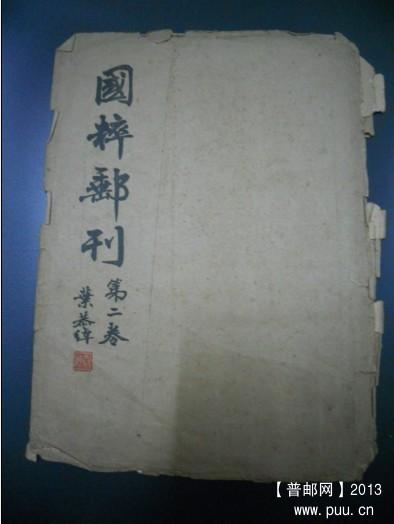 國粹郵刊
第二卷
葉恭綽
【普邮网】2013
www.puu.cn